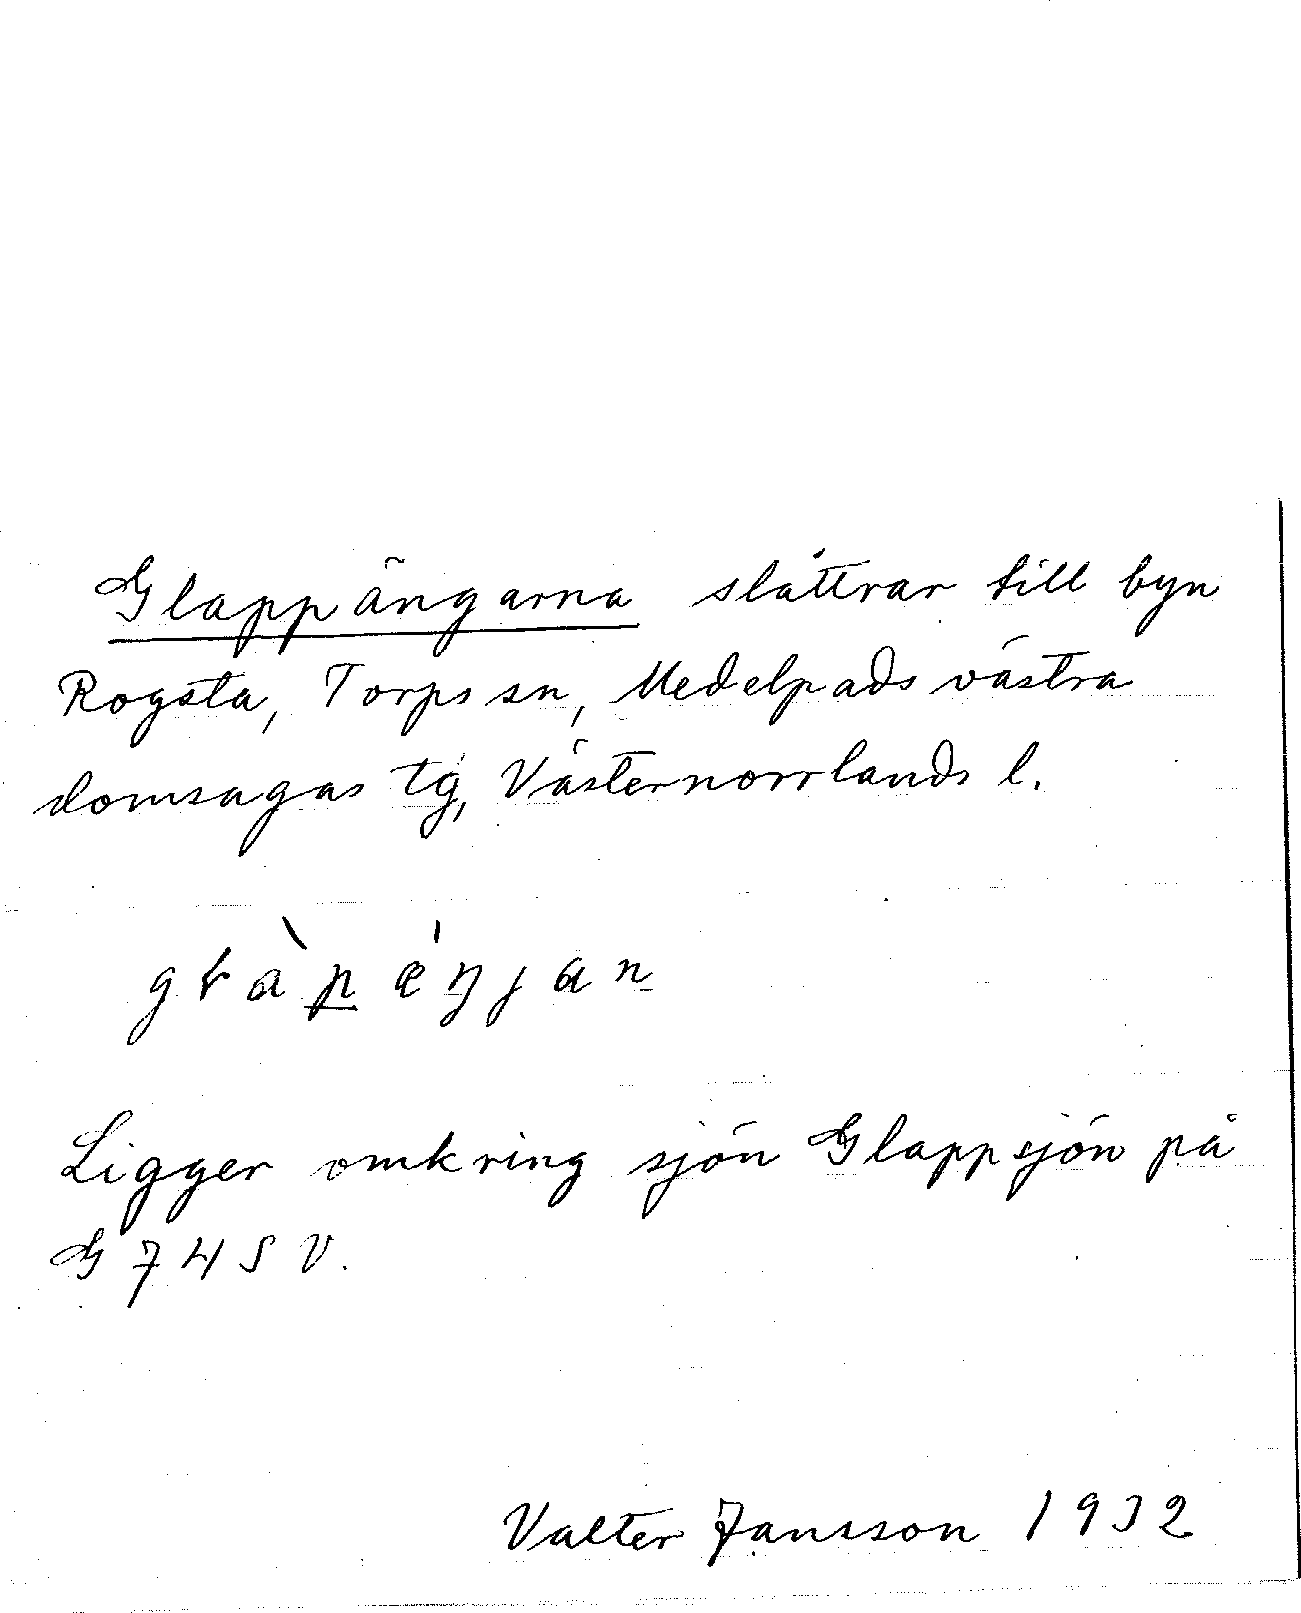 Glappängarna slåttrar till byn
Rogsta, Torps sn, Medelpads västra
domsagas tg, Västernorrlands l.
Ligger omkring sjön Glappsjön på
G 74 S V.
Valter Jansson 1932